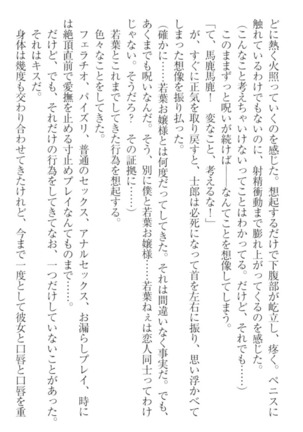 どに熱く火照っていくのを感じた。想起するだけで下腹部が屹立し、疼く。ペニスに
触れているわけでもないのに、射精衝動まで膨れ上がってくるのを感じた。
（こんなこと考えちゃいけないってことはわかってる。だけど、それでも……）
このままずっと呪いが続けば――なんてことを想像してしまう。
「て、馬鹿馬鹿！　変なこと、考えるな！」
が、すぐに正気を取り戻すと、士郎は必死になって首を左右に振り、思い浮かべて
しまった想像を振り払った。
（確かに……若葉お嬢様とは何度だってしてきた。それは間違いなく事実だ。でも、
あくまでも呪いなんだ。そう、別に僕と若葉お嬢様……若葉ねぇは恋人同士ってわけ
じゃない。そうだろ？　その証拠に……）
若葉とこれまでしてきた行為を想起する。
色々なことをしてきた。
フェラチオ、パイズリ、普通のセックス、アナルセックス、お漏らしプレイ、時に
は絶頂直前で愛撫を止める寸止めプレイなんてものまで……。
だけど、でも、それだけの行為をしてきてなお、一つだけしていないことがあった。
それはキスだ。
身体は幾度も交わり合わせてきたけれど、今まで一度として彼女と口唇と口唇を重